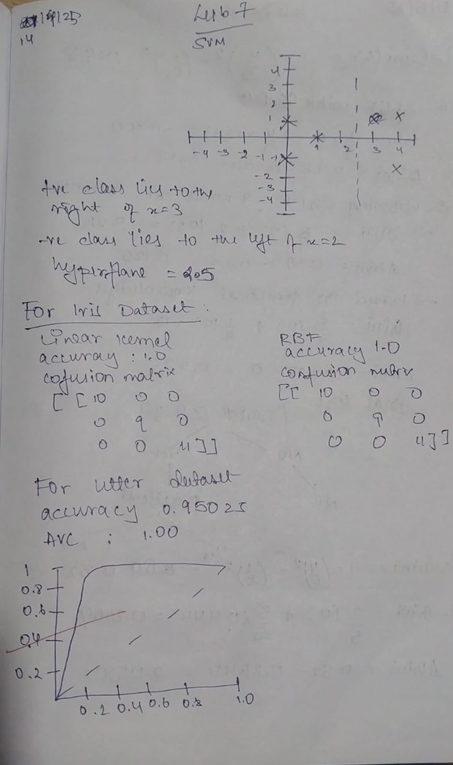 Lab 7
14
SVM
4
3
2
1
-4 -3 -2 -1 1 2 3 4
-1
-2
-3
-4
+ve class lies to the
right of x=3
-ve class lies to the left of x=2
hyperplane = 2.5
For Iris Dataset :
Linear Kernel
accuray : 1.0
cofusion matrix
[ [ 10 0 0
0 9 0
0 0 11 ] ]
RBF
accuracy 1.0
confusion matrx
[[ 10 0 0
0 9 0
0 0 11 ] ]
For letter dataset
accuracy 0.95025
AUC : 1.00
1
0.8
0.6
0.4
0.2
0.2 0.4 0.6 0.8 1.0